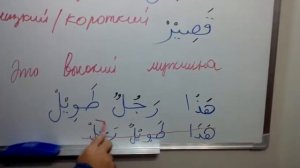 короткий
قَصِيْرٌ
Это высокий мужчина
هَذَا رَجُلٌ طَوِيْلٌ
هَذَا طَوِيْلٌ